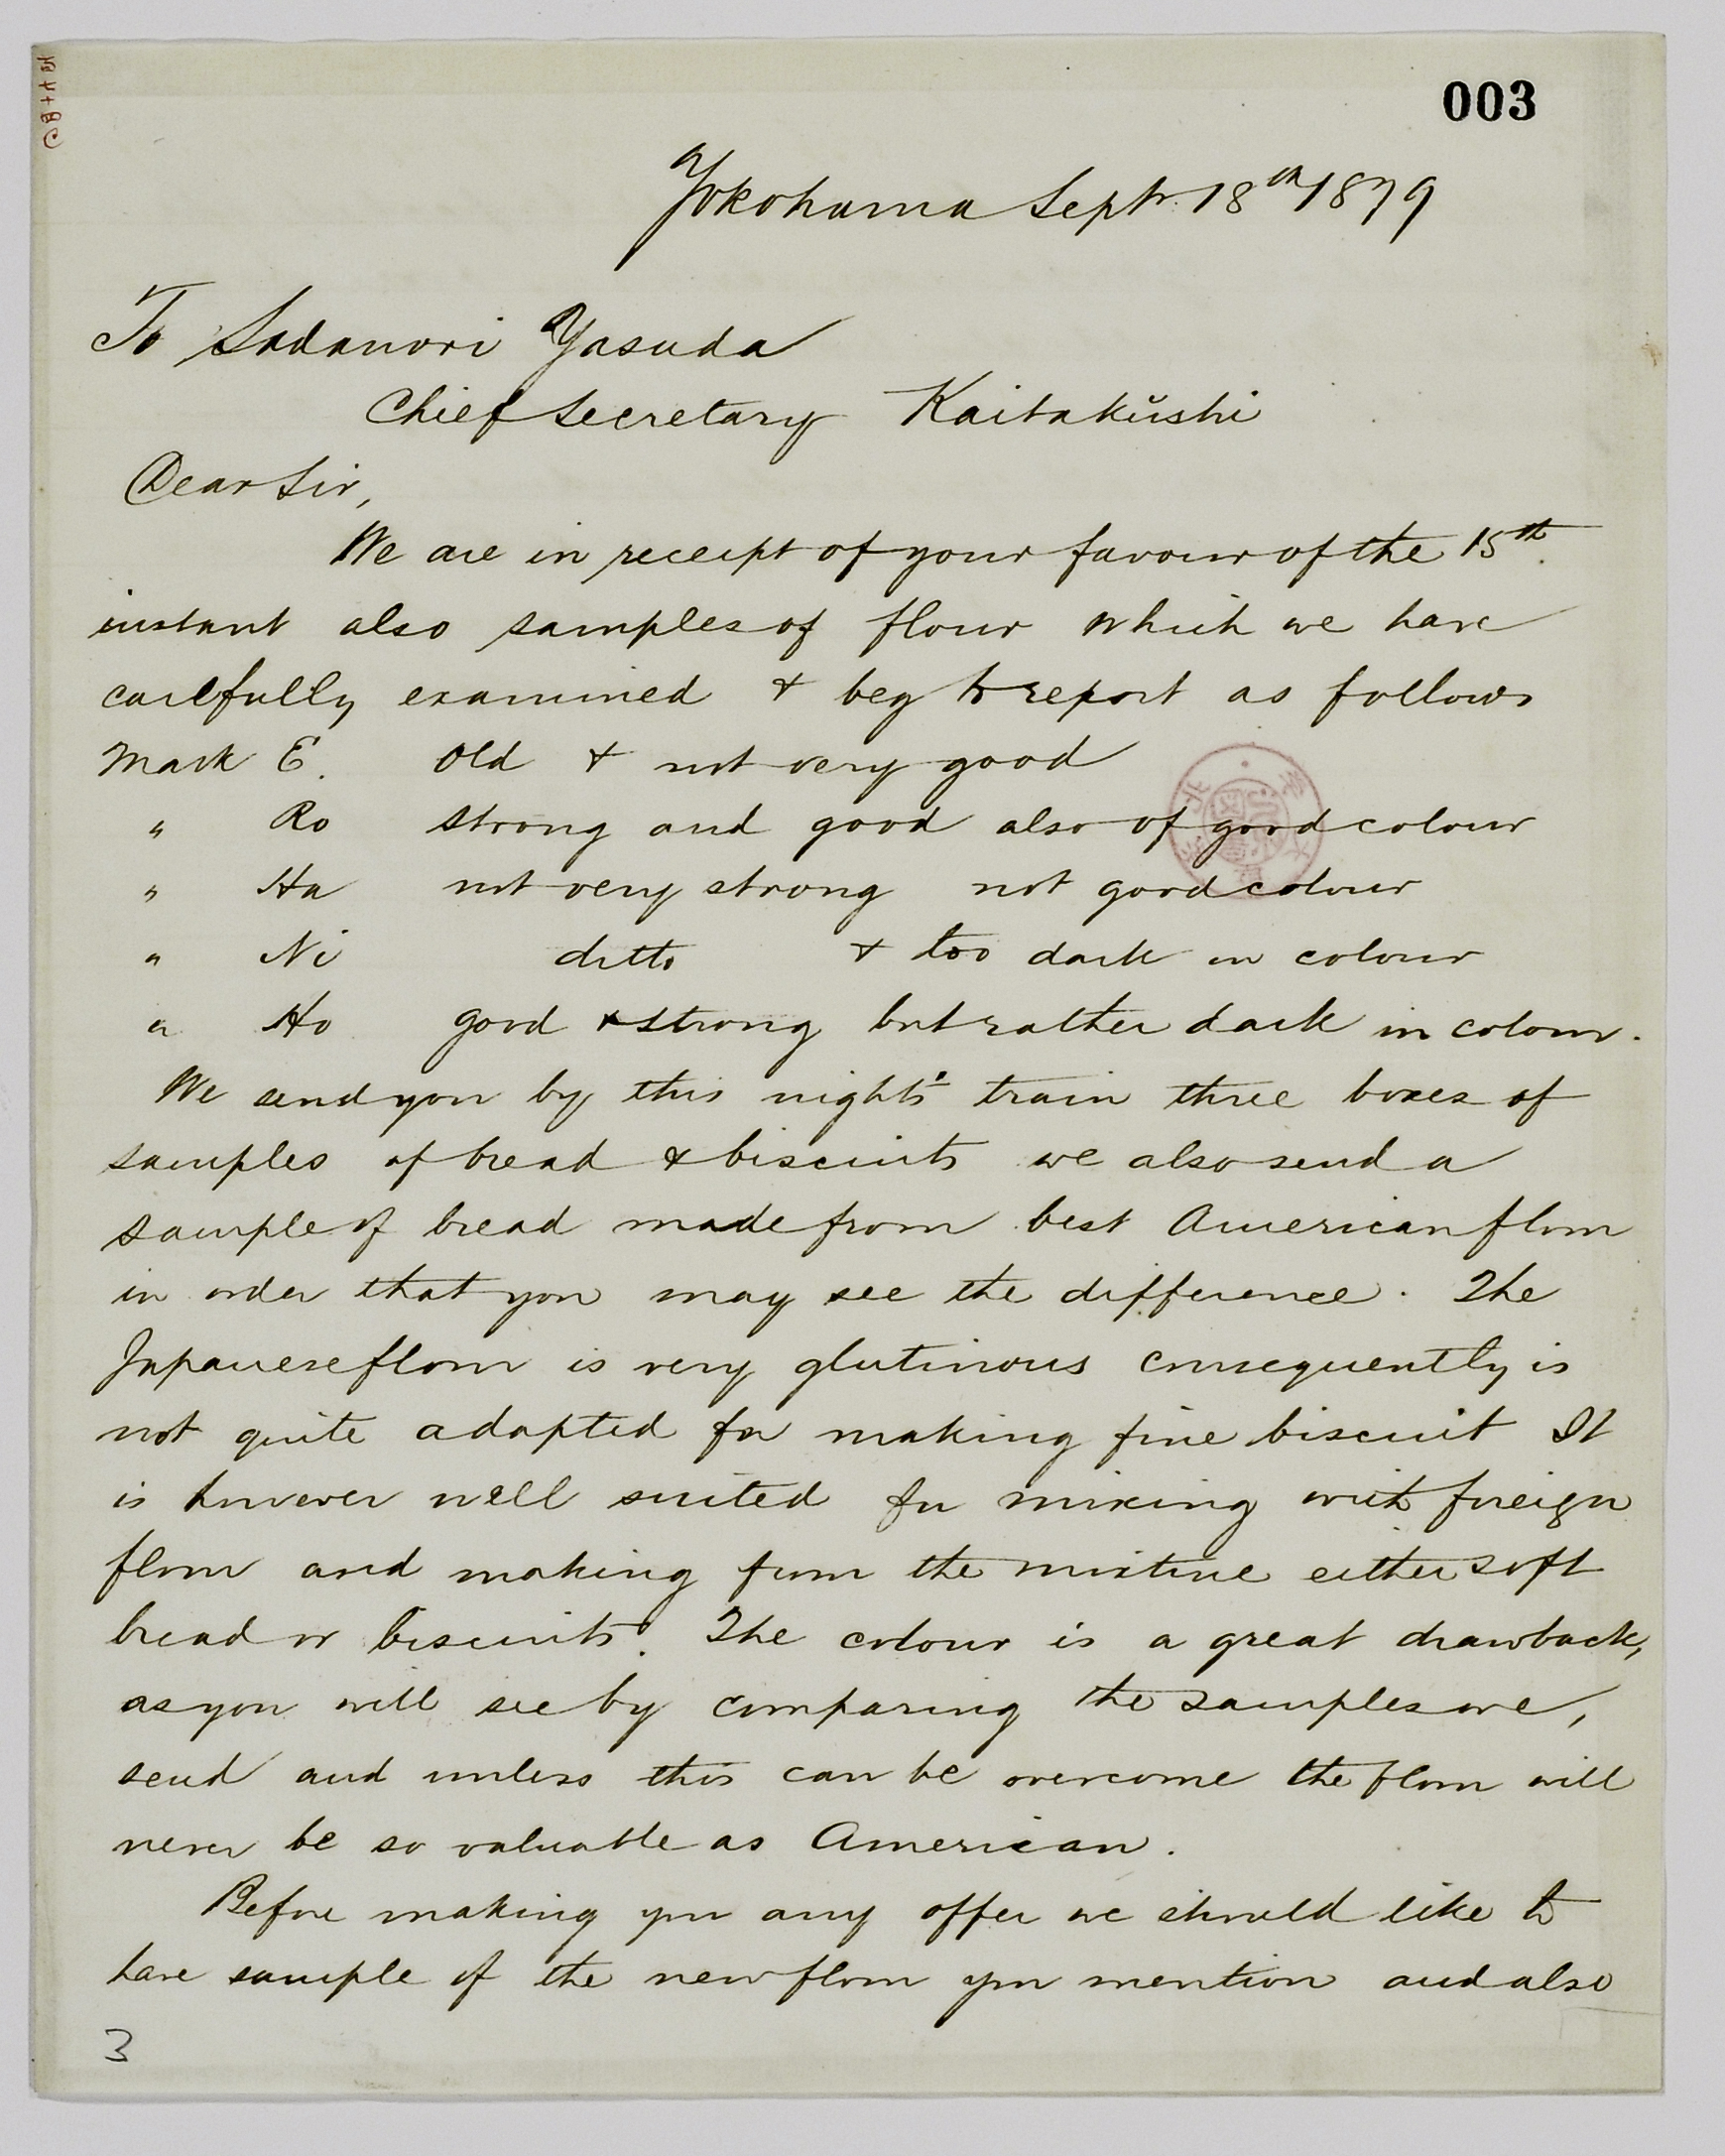 003
Yokohama Septr. 18th 1879
To Sadanori Yasuda
Chief Secretary Kaitakŭshi
Dear Sir,
We are in receipt of your favour of the 15th.
instant also samples of flour which we have
carefully examined & beg to report as follows
Mark E. Old & not very good
" Ro strong and good also of good colour
" Ha not very strong not good colour
" Ni ditto & too dark in colour
" Ho good & strong but rather dark in colour.
We send you by this night's train three boxes of
samples of bread & biscuits we also send a
sample of bread made from best American flour
in order that you may see the difference. The
Japanese flour is very glutinous consequently is
not quite adapted for making fine biscuit It
is however well suited for mixing with foreign
flour and making from the mixture either soft
bread or biscuits. The colour is a great drawback,
as you will see by comparing the samples we,
send and unless this can be overcome the flour will
never be so valuable as American.
Before making you any offer we should like to
have sample of the new flour you mention and also
3